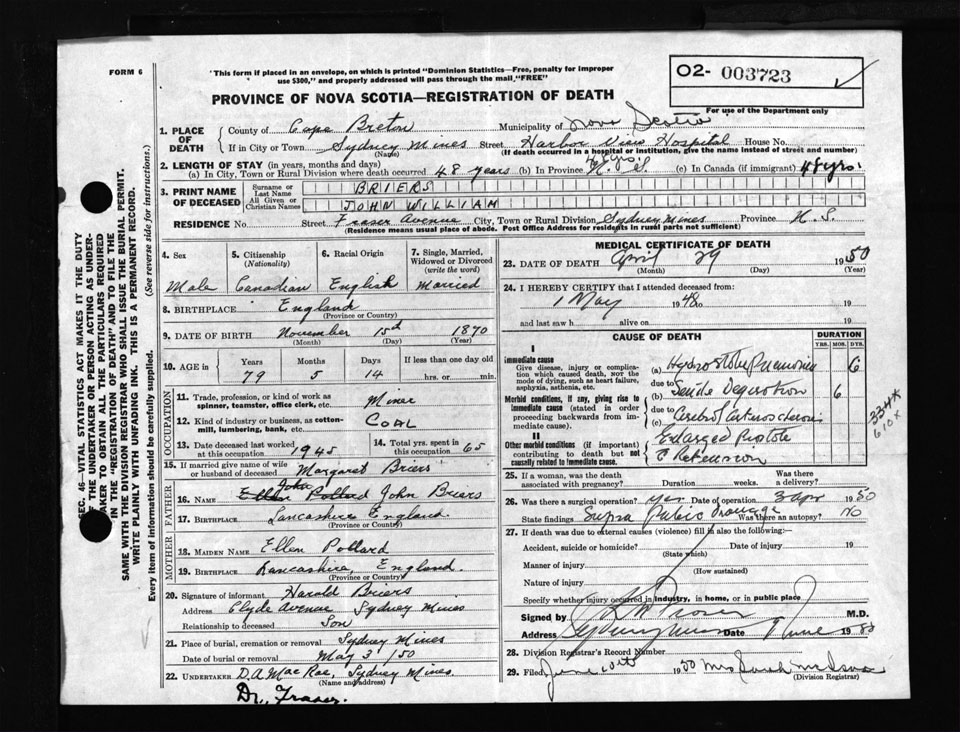 FORM 6
"This form if placed in an envelope, on which is printed "Dominion Statistics—Free, penalty for improper
use $300," and properly addressed will pass through the mail, "FREE"
02- 003723
For use of the Department only
PROVINCE OF NOVA SCOTIA—REGISTRATION OF DEATH
1. PLACE OF DEATH
County of Cape Breton Municipality of Nova Scotia
If in City or Town Sydney Mines Street Harbor View Hospital House No.
(Name) (If death occurred in a hospital or institution, give the name instead of street and number)
2. LENGTH OF STAY (in years, months and days)
(a) In City, Town or Rural Division where death occurred 48 years (b) In Province 48 yrs. N. S. (c) In Canada (if immigrant) 48 yrs.
3. PRINT NAME OF DECEASED
Surname or Last Name BRIERS
All Given or Christian Names JOHN WILLIAM
RESIDENCE No. Street Fraser Avenue City, Town or Rural Division Sydney Mines Province N. S.
(Residence means usual place of abode. Post Office Address for residents in rural parts not sufficient)
4. Sex
5. Citizenship (Nationality)
6. Racial Origin
7. Single, Married, Widowed or Divorced (write the word)
Male Canadian English Married
8. BIRTHPLACE England
(Province or Country)
9. DATE OF BIRTH November 15 1870
(Month) (Day) (Year)
10. AGE in
Years Months Days If less than one day old
79 5 14 hrs. or min.
OCCUPATION
11. Trade, profession, or kind of work as spinner, teamster, office clerk, etc. Miner
12. Kind of industry or business, as cotton-mill, lumbering, bank, etc. COAL
13. Date deceased last worked at this occupation 1945
14. Total yrs. spent in this occupation 65
15. If married give name of wife or husband of deceased Margaret Briers
FATHER
16. NAME Ellen Pollard John John Briers
17. BIRTHPLACE Lancashire England
(Province or Country)
MOTHER
18. MAIDEN NAME Ellen Pollard
19. BIRTHPLACE Lancashire, England.
(Province or Country)
20. Signature of informant Harold Briers
Address Clyde Avenue Sydney Mines
Relationship to deceased Son
21. Place of burial, cremation or removal Sydney Mines
Date of burial or removal May 3 '50
22. UNDERTAKER D. A MacRae, Sydney Mines.
(Name and address)
Dr. Fraser.
MEDICAL CERTIFICATE OF DEATH
23. DATE OF DEATH April 29 1950
(Month) (Day) (Year)
24. I HEREBY CERTIFY that I attended deceased from:
1 May 1948 19
and last saw h alive on 19
CAUSE OF DEATH
DURATION
YRS. MOS. DYS.
I
Immediate cause
Give disease, injury or complication which caused death, not the mode of dying, such as heart failure, asphyxia, asthenia, etc.
(a) Hypostatic Pneumonia 6
due to
Morbid conditions, if any, giving rise to immediate cause (stated in order proceeding backwards from immediate).
(b) Senile 6
due to
(c) Cerebral Arteriosclerosis
II
Other morbid conditions (if important) contributing to death but not causally related to immediate cause.
Enlarged Prostate
c Retension
334*
610 x
25. If a woman, was the death associated with pregnancy? Duration weeks. Was there a delivery?
26. Was there a surgical operation? yes Date of operation 3 apr 1950
State findings Supra Pubic Drainage Was there an autopsy? No
27. If death was due to external causes (violence) fill in also the following:
Accident, suicide or homicide? Date of injury 19
(State which)
Manner of injury
(How sustained)
Nature of injury
Specify whether injury occurred in industry, in home, or in public place
Signed by Fraser M.D.
Address Sydney Mines Date June 19
28. Division Registrar's Record Number
29. Filed June 1950 Mrs Sarah
(Division Registrar)
SEC. 46—VITAL STATISTICS ACT MAKES IT THE DUTY
OF THE UNDERTAKER OR PERSON ACTING AS UNDERTAKER TO OBTAIN ALL THE PARTICULARS REQUIRED
IN THE "REGISTRATION OF DEATH" AND TO FILE THE
SAME WITH THE DIVISION REGISTRAR WHO SHALL ISSUE THE BURIAL PERMIT.
WRITE PLAINLY WITH UNFADING INK. THIS IS A PERMANENT RECORD.
Every item of information should be carefully supplied. (See reverse side for instructions.)